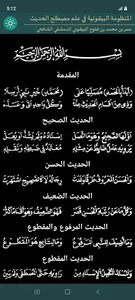 5:12
المنظومة البيقونية في علم مصطلح الحديث
عمر بن محمد بن فتوح البيقوني الدمشقي الشافعي
بسم الله الرحمن الرحيم
المقدمة
أبدأ بالحمد مصليا على محمد خير نبي أرسلا
وذي من أقسام الحديث عده وكل واحد أتى وحده
الحديث الصحيح
أولها الصحيح وهو ما اتصل إسناده ولم يشذ أو يعل
يرويه عدل ضابط عن مثله معتمد في ضبطه ونقله
الحديث الحسن
والحسن المعروف طرقا وغدت رجاله لا كالصحيح اشتهرت
الحديث الضعيف
وكل ما عن رتبة الحسن قصر فهو الضعيف وهو أقساما كثر
الحديث المرفوع والمقطوع
وما أضيف للنبي المرفوع وما لتابع هو المقطوع
الحديث المسند
والمسند المتصل الإسناد من راويه حتى المصطفى ولم يبن